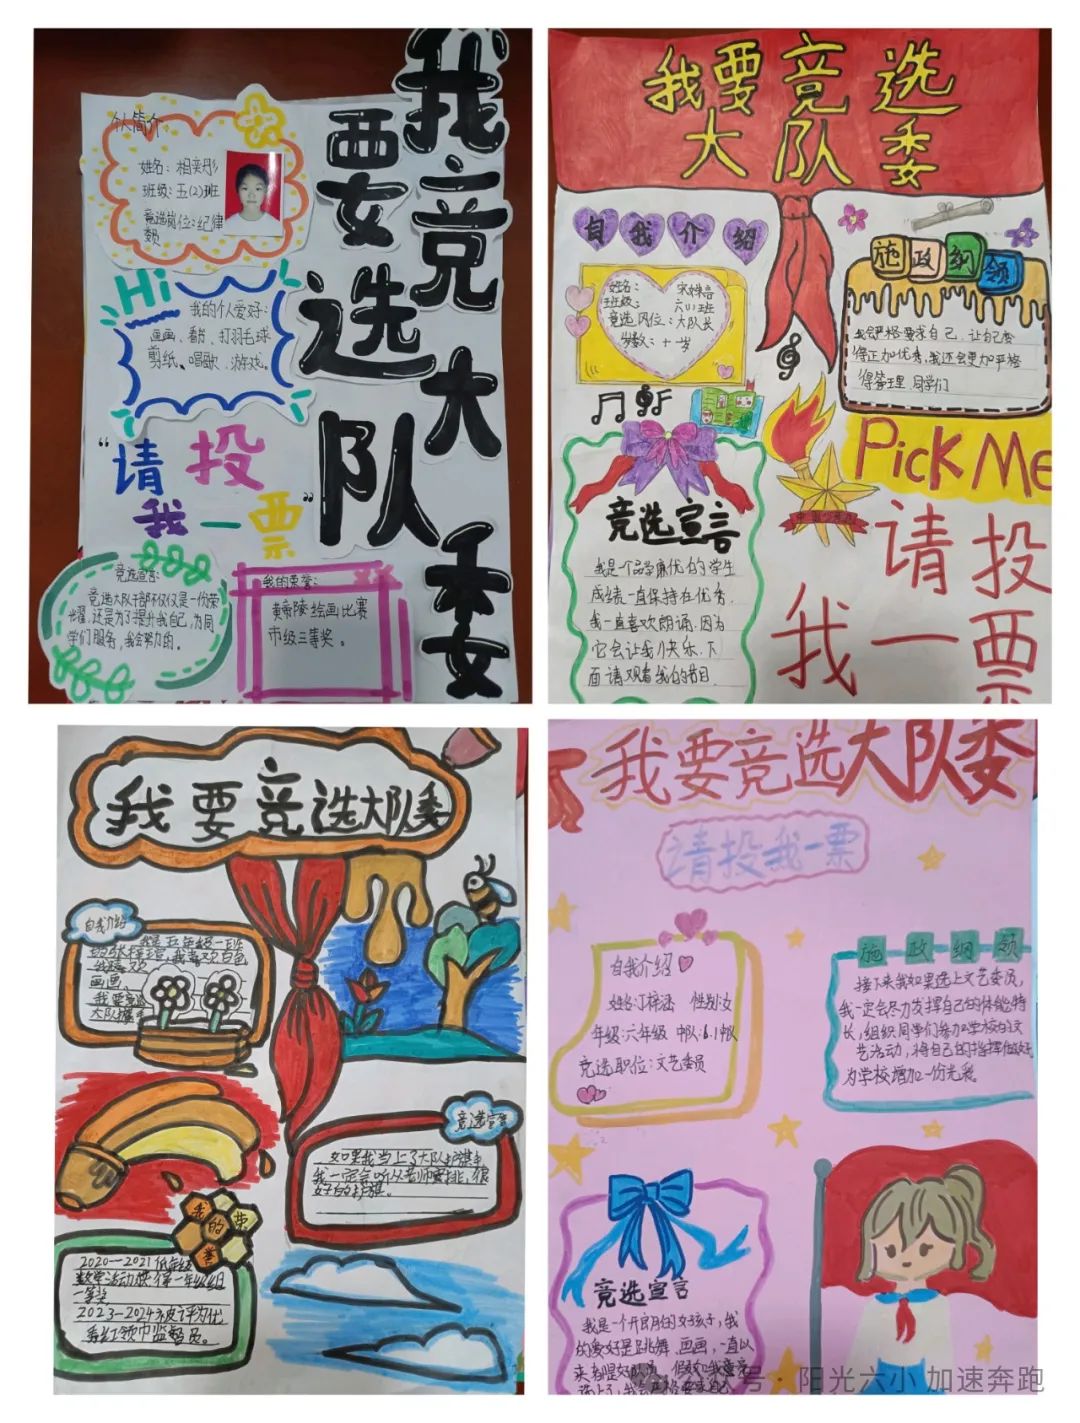 我要竞选大队委
个人简介
姓名：相奕彤
班级：五(2)班
竞选岗位：纪律
委员
Hi
我的个人爱好：
画画、看书、打羽毛球
剪纸、唱歌、游戏。
“请投
我一票”
竞选宣言：
竞选大队干部不仅仅是一份荣
光耀，还是为了提升我自己，为同
学们服务，我会努力的。
我的荣誉：
黄帝陵绘画比赛
市级三等奖。
我要竞选
大队委
自我介绍
姓名：
班级：六(1)班
竞选岗位：大队长
岁数：十一岁
施政纲领
我会严格要求自己，让自己变
得正加优秀，我还会更加严格
得管理同学们
Pick Me
请投
我一票
竞选宣言
我是一个品学兼优的学生
成绩一直保持在优秀，
我一直喜欢朗诵，因为
它会让我们快乐，下
面请观看我的节目。
我要竞选大队委
自我介绍
我是五年级一班
画画，
我要竞选
竞选宣言
如果我当上了大队护旗手
我一定会听从老师安排，很
好的护旗。
我的荣誉
2020—2021低年级
数学活动获得一年级组
一等奖
2023—2024被评为优
秀红领巾监督员。
我要竞选大队委
请投我一票
自我介绍
姓名：丁梓涵 性别：女
年级：六年级 中队：6.1中队
竞选职位：文艺委员
施政纲领
接下来我如果选上文艺委员，
我一定会尽力发挥自己的体能特
长，组织同学们参加学校的文
艺活动，将自己的指挥做好
为学校增加一份光彩。
竞选宣言
我是一个开朗的女孩子，我
的爱好是跳舞、画画，一直以
公众号·阳光六小 加速奔跑